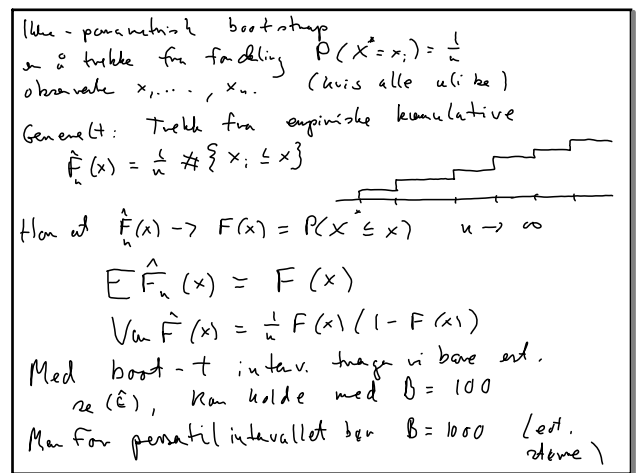 Ikke-parametrisk bootstrap
er å trekke fra fordeling P(X* = xᵢ) = 1/n
observerte x₁, ..., xₙ. (hvis alle ulike)
Generelt: Trekk fra empiriske kumulative
F̂ₙ(x) = 1/n #{xᵢ ≤ x}
Har at F̂ₙ(x) -> F(x) = P(X* ≤ x) n -> ∞
E F̂ₙ(x) = F(x)
Var F̂(x) = 1/n F(x)(1 - F(x))
Med boot-t interv. trenger vi bare est.
se(θ̂), kan holde med B = 100
Men For persentil intervallet bør B = 1000 (est.
større)